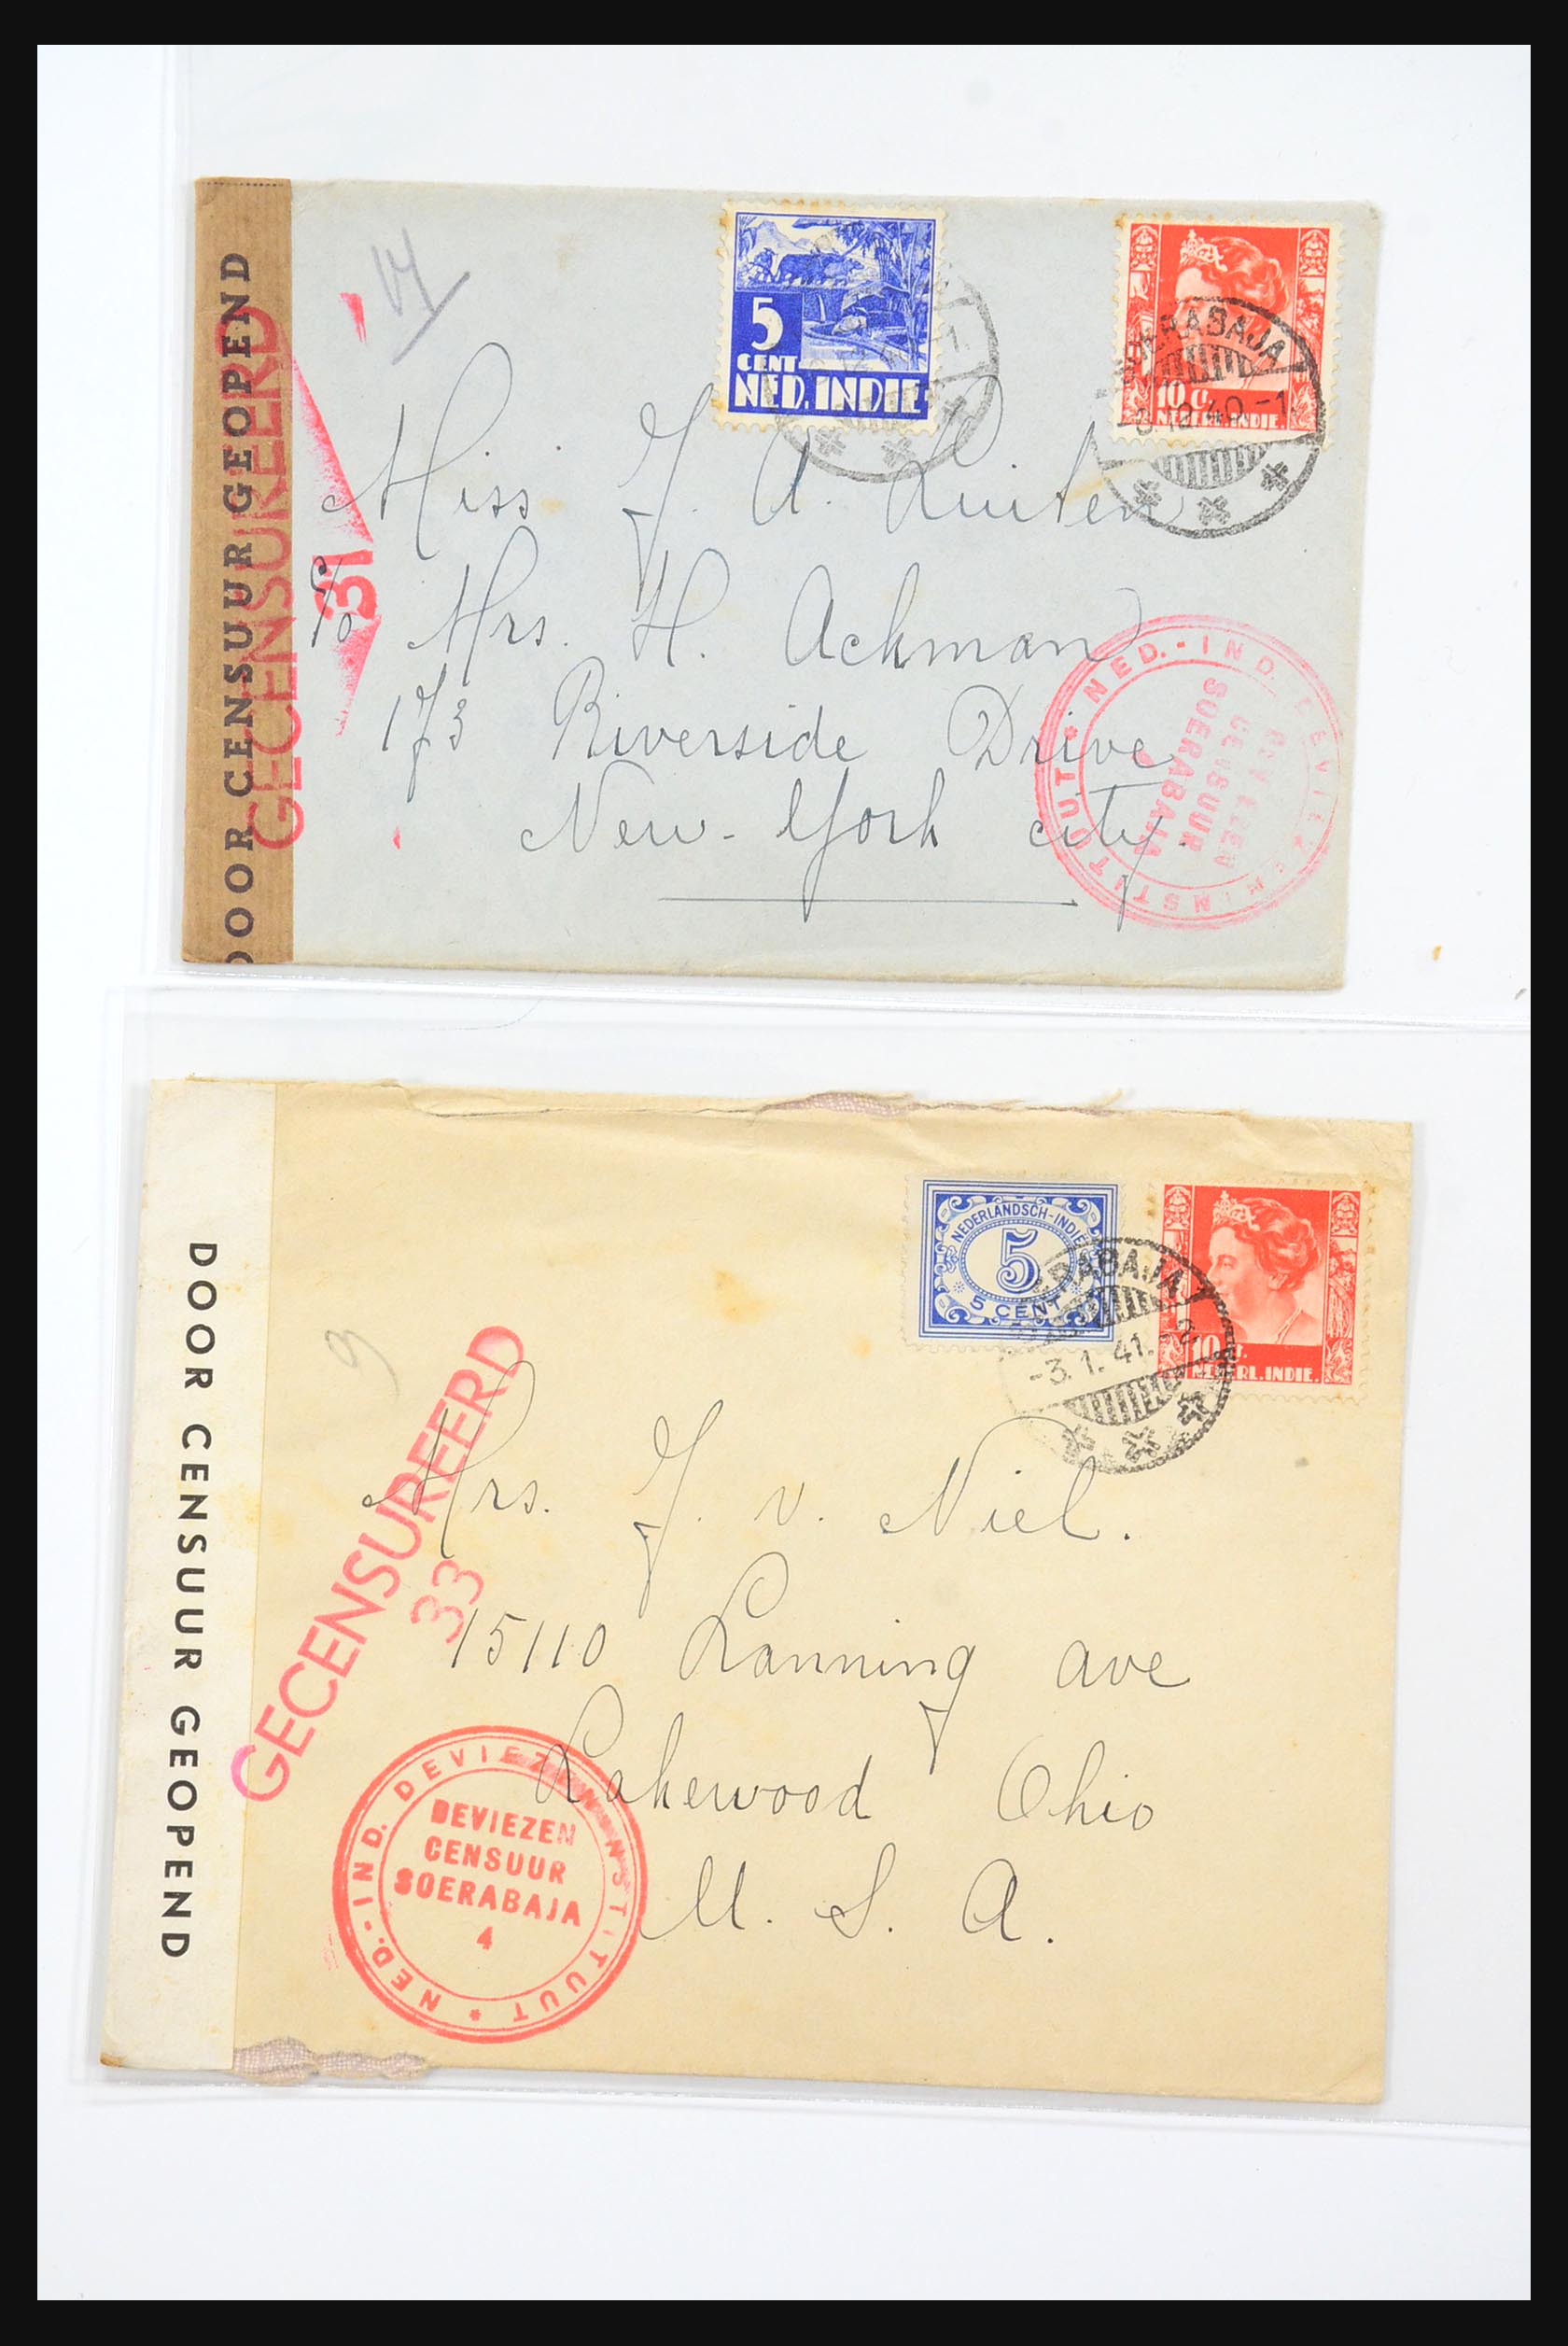 DOOR CENSUUR GEOPEND
GECENSUREERD
31
5
CENT
NED. INDIE
10 c.
NEDERL. INDIE.
RABAJA
10.40.-1
Miss J. A. Luiten
c/o Mrs. H. Ackman
173 Riverside Drive
New-York city.
NED.-IND. DEVIEZENINSTITUUT *
DEVIEZEN
CENSUUR
SOERABAJA
DOOR CENSUUR GEOPEND
9
GECENSUREERD
33
NEDERLANDSCH-INDIE
5
5 CENT
10 c.
NEDERL. INDIE.
RABAJA
-3.1.41.-2
Mrs. J. v. Niel.
15110 Lanning ave
Lakewood Ohio
U. S. A.
NED.-IND. DEVIEZENINSTITUUT *
DEVIEZEN
CENSUUR
SOERABAJA
4